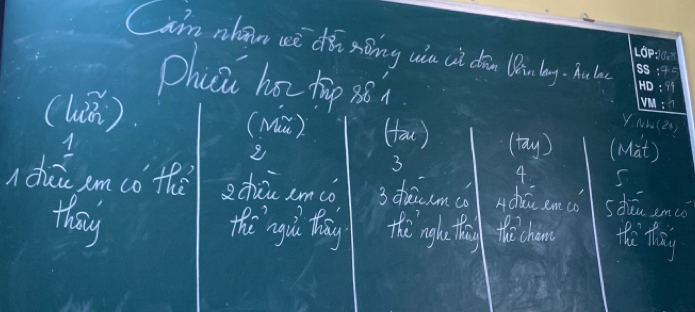 Cảm nhận về đời sống của cư dân Văn Lang - Âu Lạc
Phiếu học tập số 1
LỚP:
SS :
HD :
VM :
(lưỡi)
1
1 điều em có thể
thấy
(Mũi)
2
2 điều em có
thể ngửi thấy
(tai)
3
3 điều em có
thể nghe thấy
(tay)
4
4 điều em có
thể chạm
(Mắt)
5
5 điều em có
thể thấy